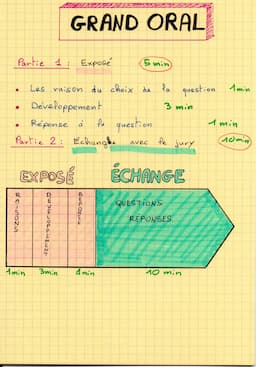 GRAND ORAL
Partie 1 : Exposé 5 min
• Les raison du choix de la question 1min
• Développement 3 min
• Réponse à la question 1 min
Partie 2 : Echange avec le jury 10min
EXPOSÉ ÉCHANGE
RAISONS
DEVELOPPEMENT
REPONSE
QUESTIONS
REPONSES
1min 3min 1min 10 min